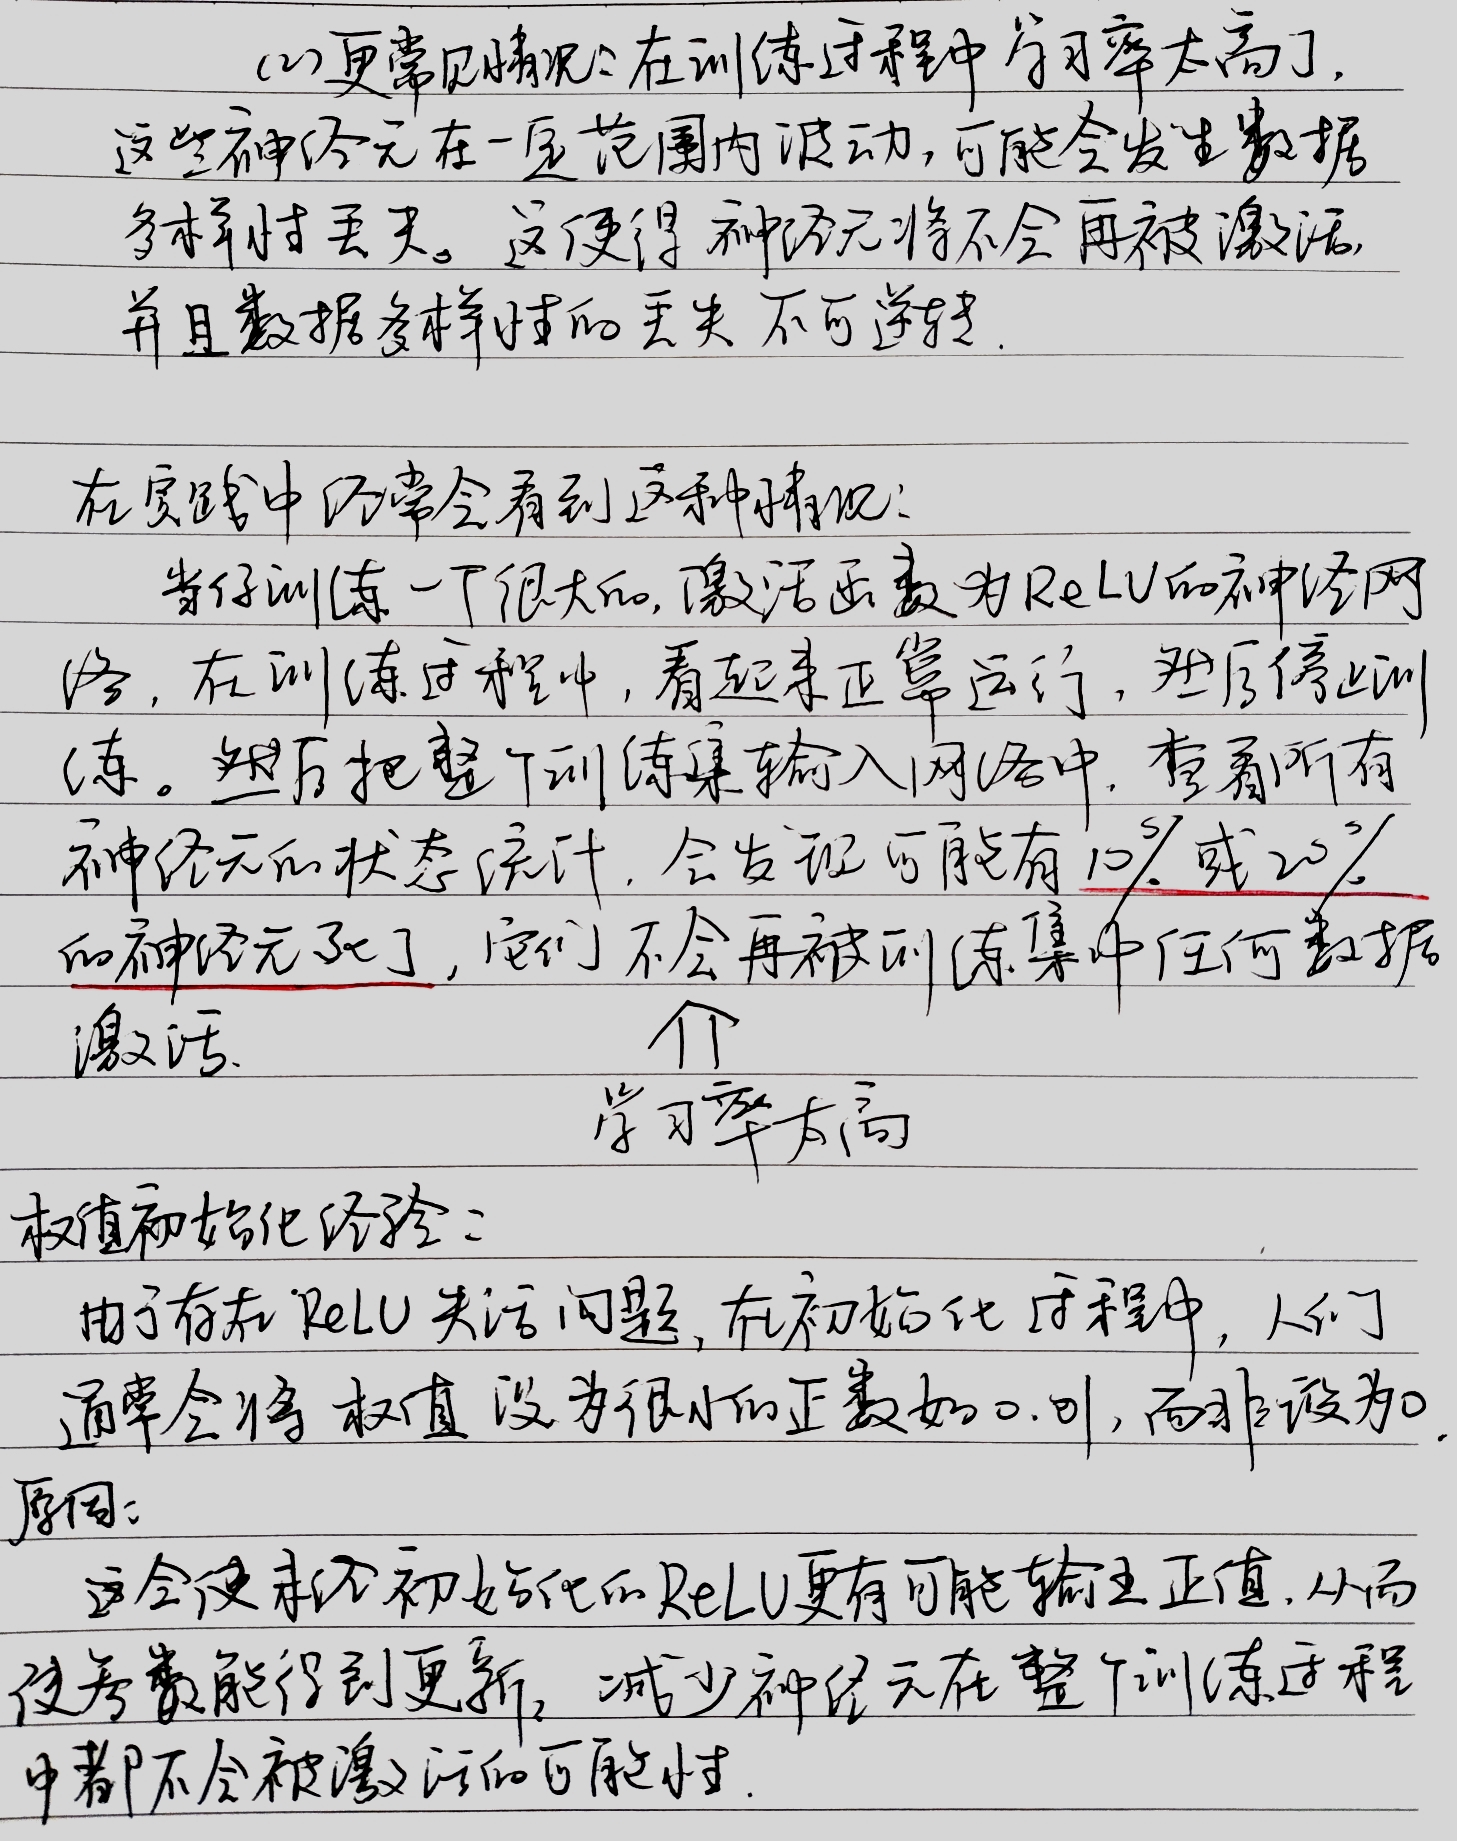 (2)更常见情况：在训练过程中学习率太高了，
这些神经元在一定范围内波动，可能会发生数据
多样性丢失。这使得神经元将不会再被激活，
并且数据多样性的丢失不可逆转.
在实践中经常会看到这种情况：
当仔训练一个很大的，激活函数为ReLU的神经网
络，在训练过程中，看起来正常运行，然后停止训
练。然后把整个训练集输入网络中，查看所有
神经元的状态统计，会发现可能有10%或20%
的神经元死了，它们不会再被训练集中任何数据
激活.
⇑
学习率太高
权值初始化经验：
由于存在ReLU失活问题，在初始化过程中，人们
通常会将权值设为很小的正数如0.01，而非设为0.
原因：
这会使未经初始化的ReLU更有可能输出正值，从而
使参数能得到更新，减少神经元在整个训练过程
中都不会被激活的可能性.